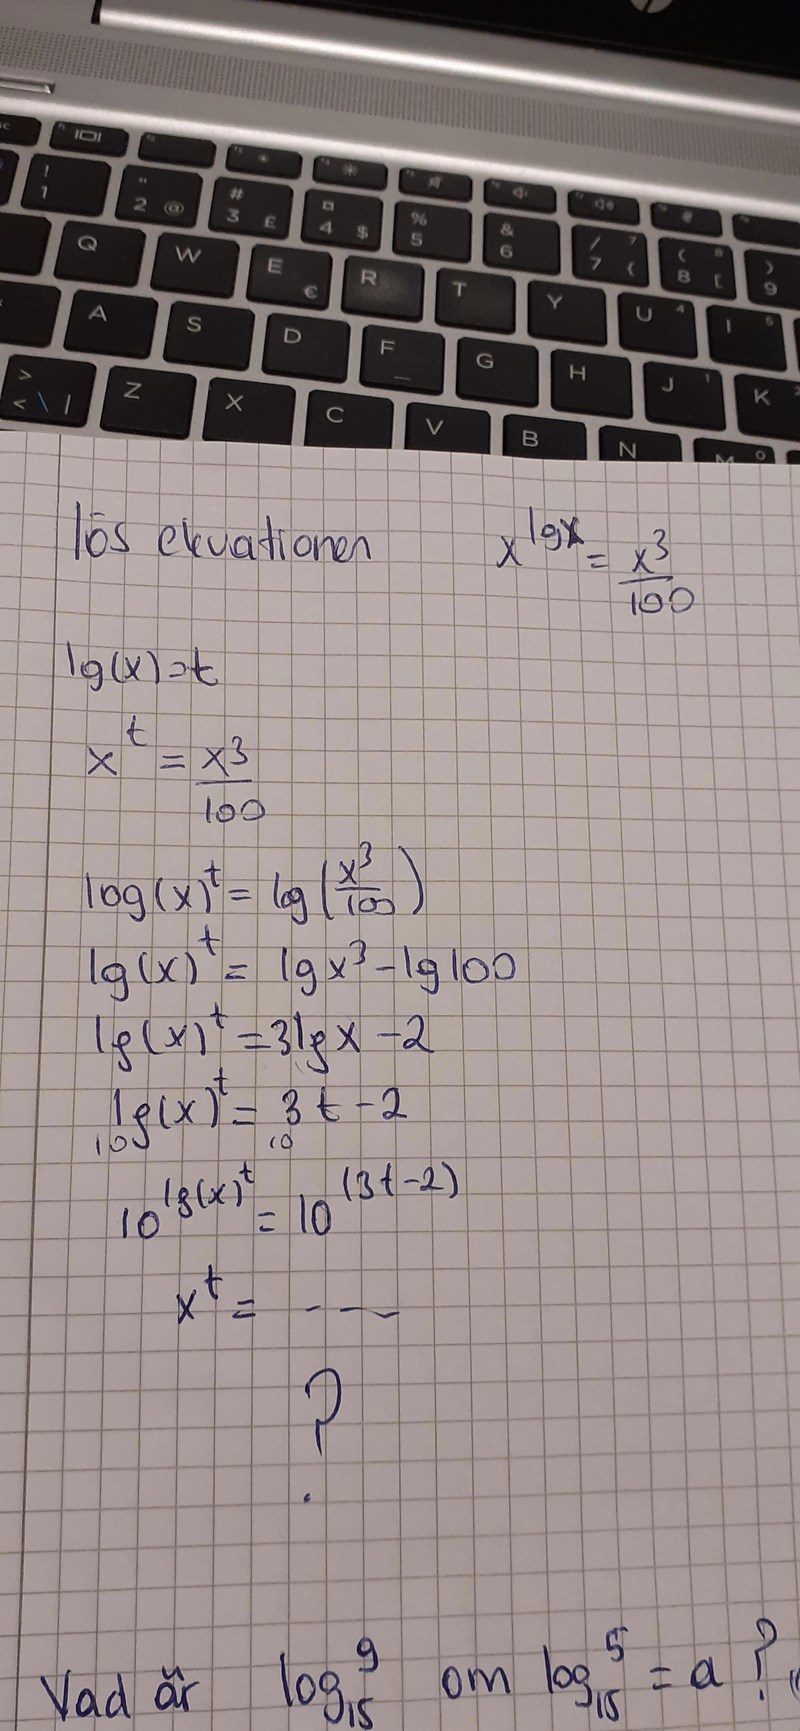 ! 1
" 2 @
# 3 £
¤ 4 $
% 5
& 6
/ 7 {
( 8 [
) 9
Q W E € R T Y U I
A S D F G H J K
> < \ | Z X C V B N M
lös ekvationen x^lgx = x^3/100
lg(x)=t
x^t = x^3/100
log(x)^t = log(x^3/100)
lg(x)^t = lgx^3 - lg100
lg(x)^t = 3lgx - 2
10 lg(x)^t = 10 3t - 2
10^lg(x)^t = 10^(3t-2)
x^t = ---
?
Vad är log_15 9 om log_15 5 = a ?